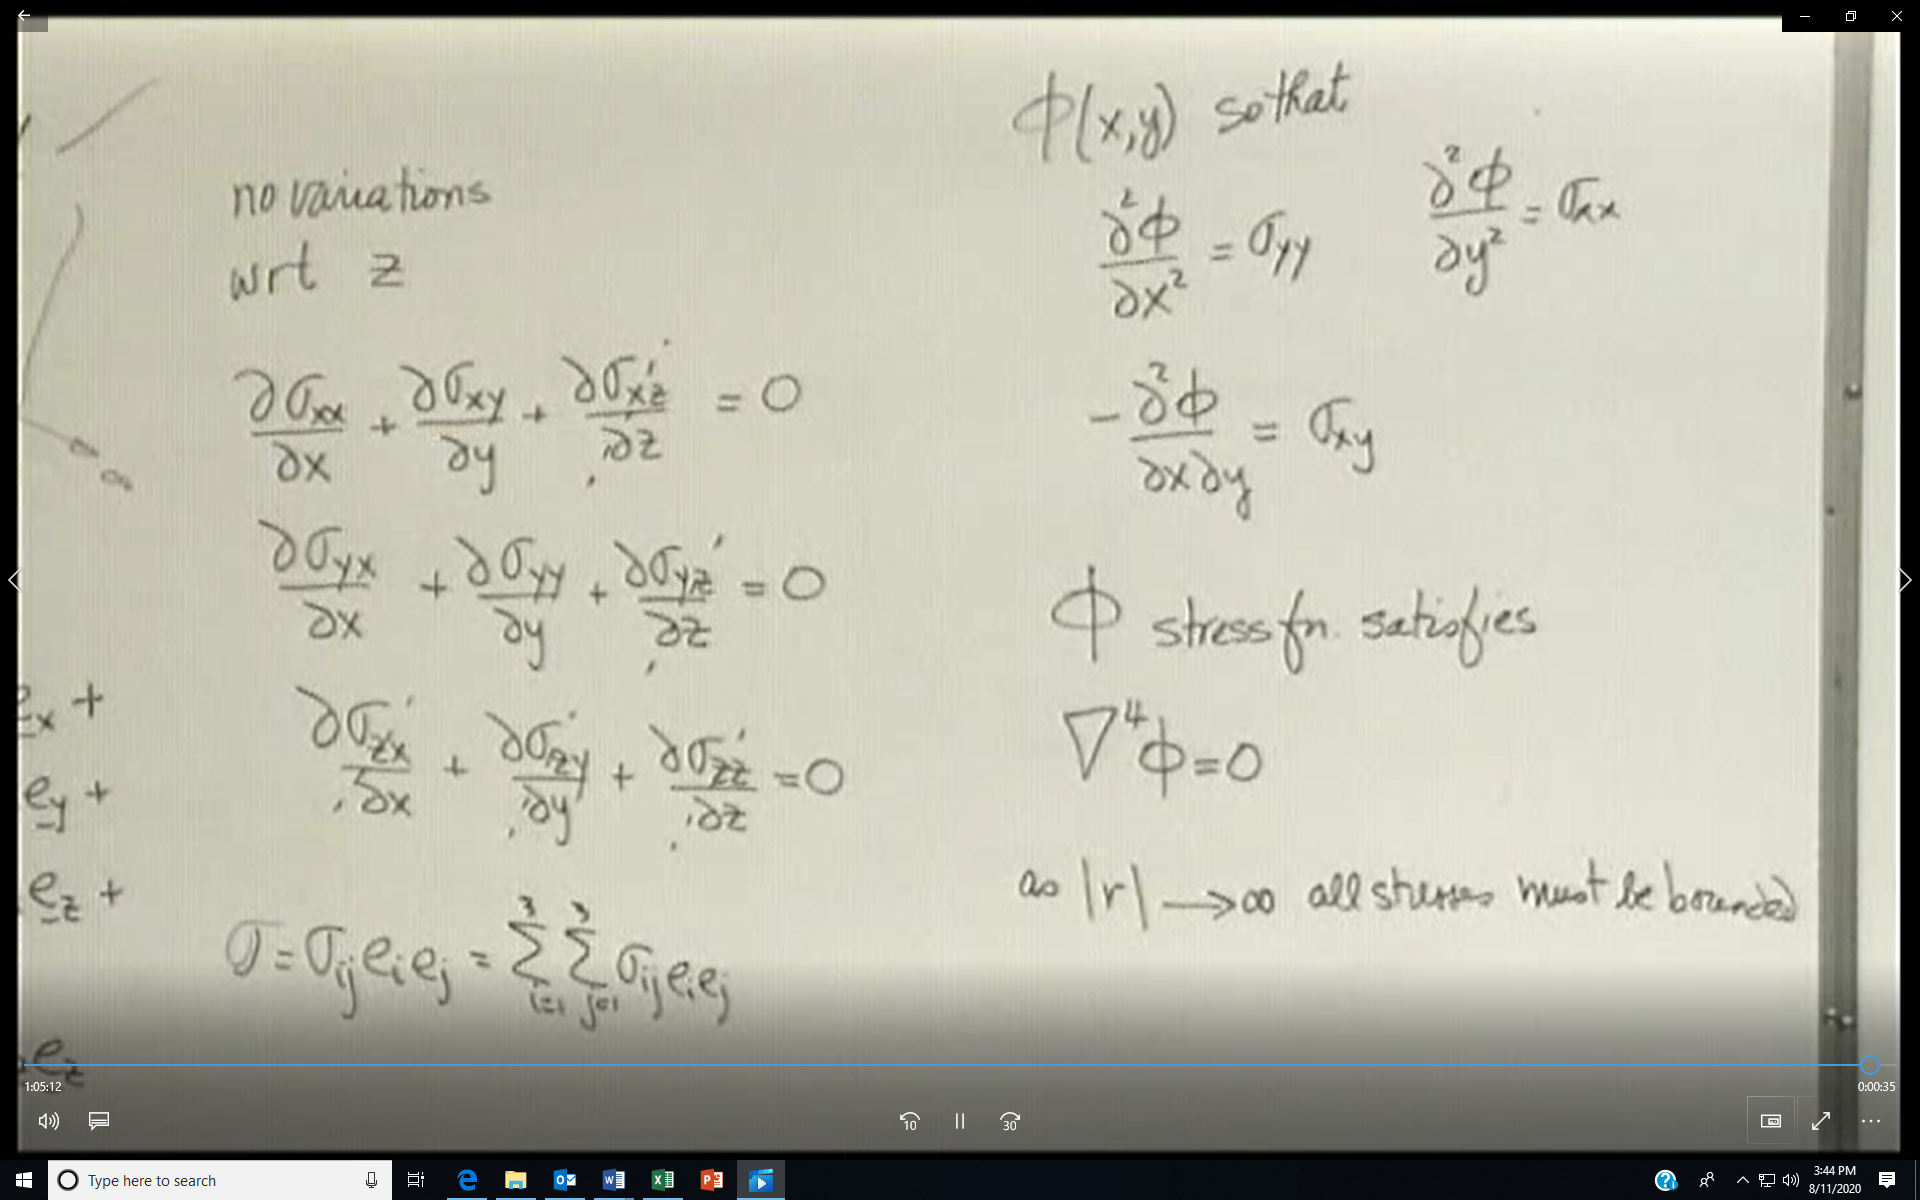 no variations
wrt z
∂σxx/∂x + ∂σxy/∂y + ∂σxz/∂z = 0
∂σyx/∂x + ∂σyy/∂y + ∂σyz/∂z = 0
∂σzx/∂x + ∂σzy/∂y + ∂σzz/∂z = 0
σ = σij ei ej = Σ(i=1 to 3) Σ(j=1 to 3) σij ei ej
ex +
ey +
ez +
ez
Φ(x,y) so that
∂²Φ/∂x² = σyy
∂²Φ/∂y² = σxx
-∂²Φ/∂x∂y = σxy
Φ stress fn. satisfies
∇⁴Φ=0
as |r| → ∞ all stresses must be bounded
1:05:12
0:00:35
10
30
Type here to search
3:44 PM
8/11/2020